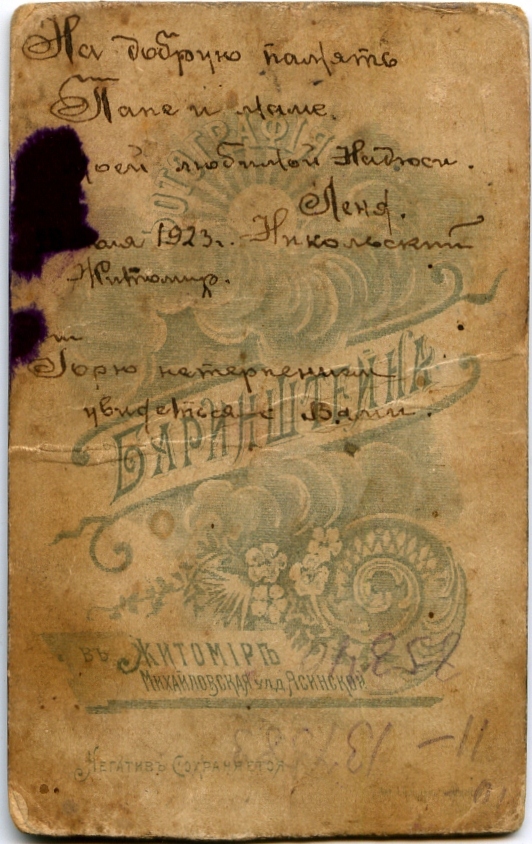 На добрую память
Папе и маме.
моей любимой Надюси.
Леня.
1923 г. Никольский
Житомир.
Горю нетерпением
увидеться с Вами.
ФОТОГРАФІЯ
БАРИНШТЕЙНА
въ ЖИТОМІРѢ
МИХАЙЛОВСКАЯ ул. д. ЯСИНСКОЙ
НЕГАТИВЪ СОХРАНЯЕТСЯ